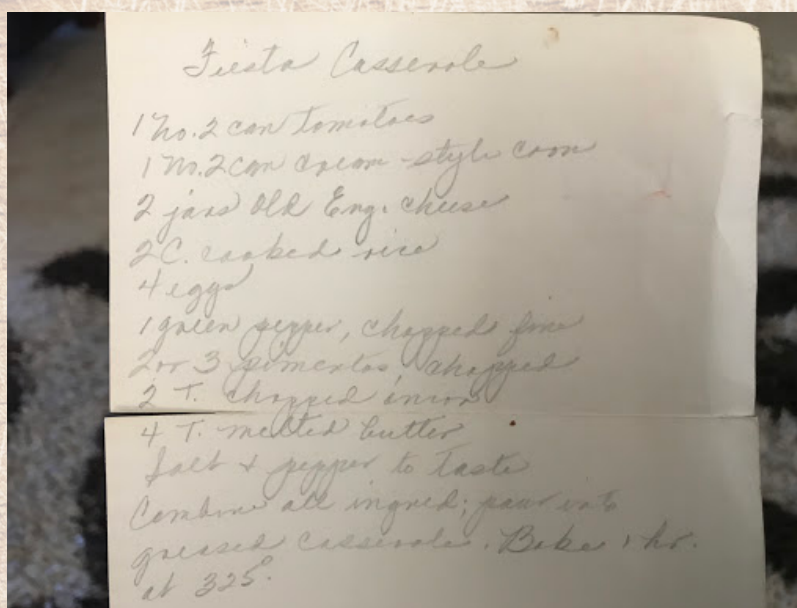 Fiesta Casserole
1 No. 2 can tomatoes
1 No. 2 can cream-style corn
2 jars Old Eng. cheese
2 C. cooked rice
4 eggs
1 green pepper, chopped fine
2 or 3 pimentos, chopped
2 T. chopped onion
4 T. melted butter
Salt & pepper to taste
Combine all ingred; pour into
greased casserole. Bake 1 hr.
at 325°.